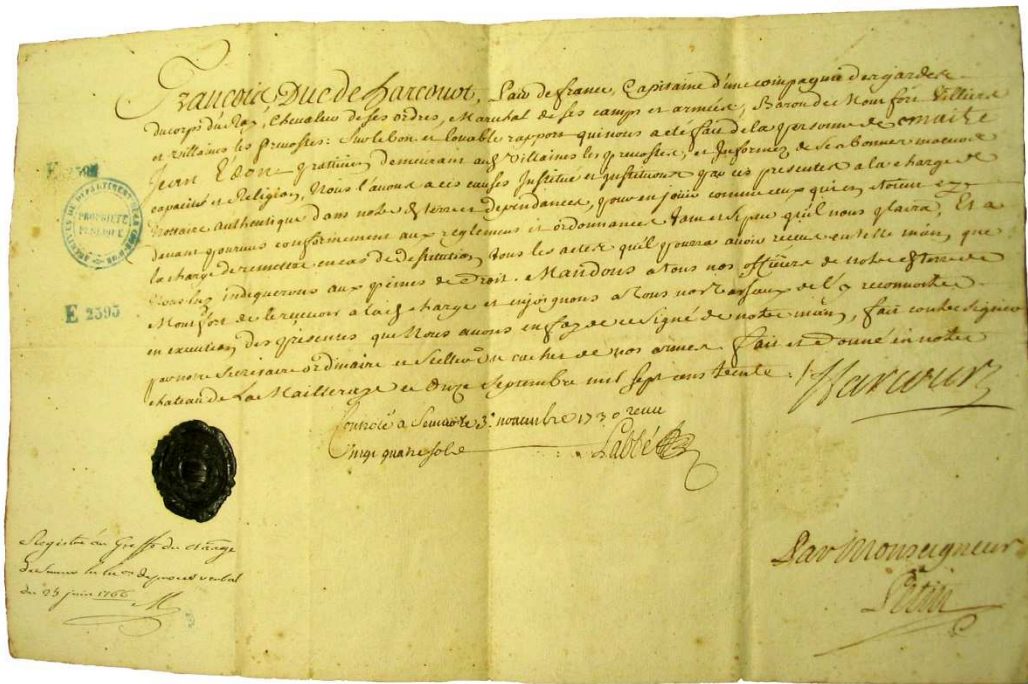 François Duc de harcourt, Pair de france, Capitaine d'une compagnie des gardes
du corps du Roy, Chevalier de ses ordres, Marechal de ses camps et armées, Baron de Montfort Villiers
et Villaines les prevostes: Sur le bon et louable rapport qui nous a eté fait de la personne de maitre
Jean Edon praticien demeurant aud. Villaines les prevostes, et Informez de ses bonnes moeurs
capacité et Religion, Nous l'avons a ces causes Institue et instituons par ces presentes a la charge de
Nottaire authentique dans notre d. terre et dependances, pour en jouir comme ceux qui en etoient cy
devant pourvus conformement aux reglemens et ordonnances tant et si peu qu'il nous plaira, Et a
la charge de remettre en cas de destitution tous les actes qu'il pourra avoir receus en telle main, que
Nous luy indiquerons aux peines de droit. Mandons a tous nos officiers de notre d. terre de
Montfort de le recevoir a lad. charge et enjoignons a tous nos vassaux de l'y reconnoitre
en execution des presentes que Nous avons en foy de ce signé de notre main, fait contresigner
par notre Secretaire ordinaire et sceller du cachet de nos armes. fait et donné en notre
chateau de La Mailleraye ce Onze Septembre mil sept cens trente. Harcourt
Controlé a Semur le 3.e novembre 1730 receu
Vingt quatre sols Labbé
E 2395
ARCHIVES DU DEPARTEMENT DE LA COTE D'OR
PROPRIÉTÉ PUBLIQUE
E 2395
Registré au Greffe du
de Semur
du 23 juin 1766
Par Monseigneur